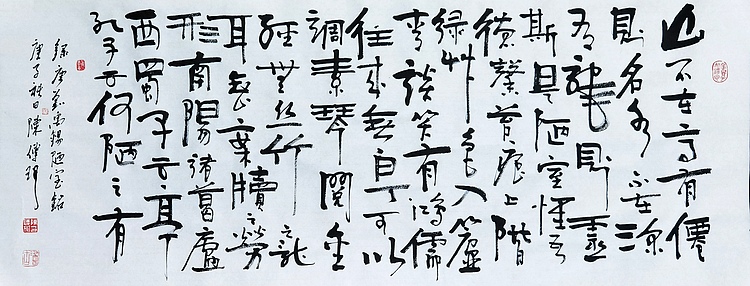 山不在高有僊
則名水不在深
有龍則靈
斯是陋室惟吾
德馨苔痕上階
綠艸色入簾
青談笑有鴻儒
往來無白丁可以
調素琴閱金
經無丝竹之亂
耳無案牘之勞
形南陽諸葛廬
西蜀子云亭
孔子云何陋之有
錄唐劉禹錫陋室銘
庚子秋日陳傳